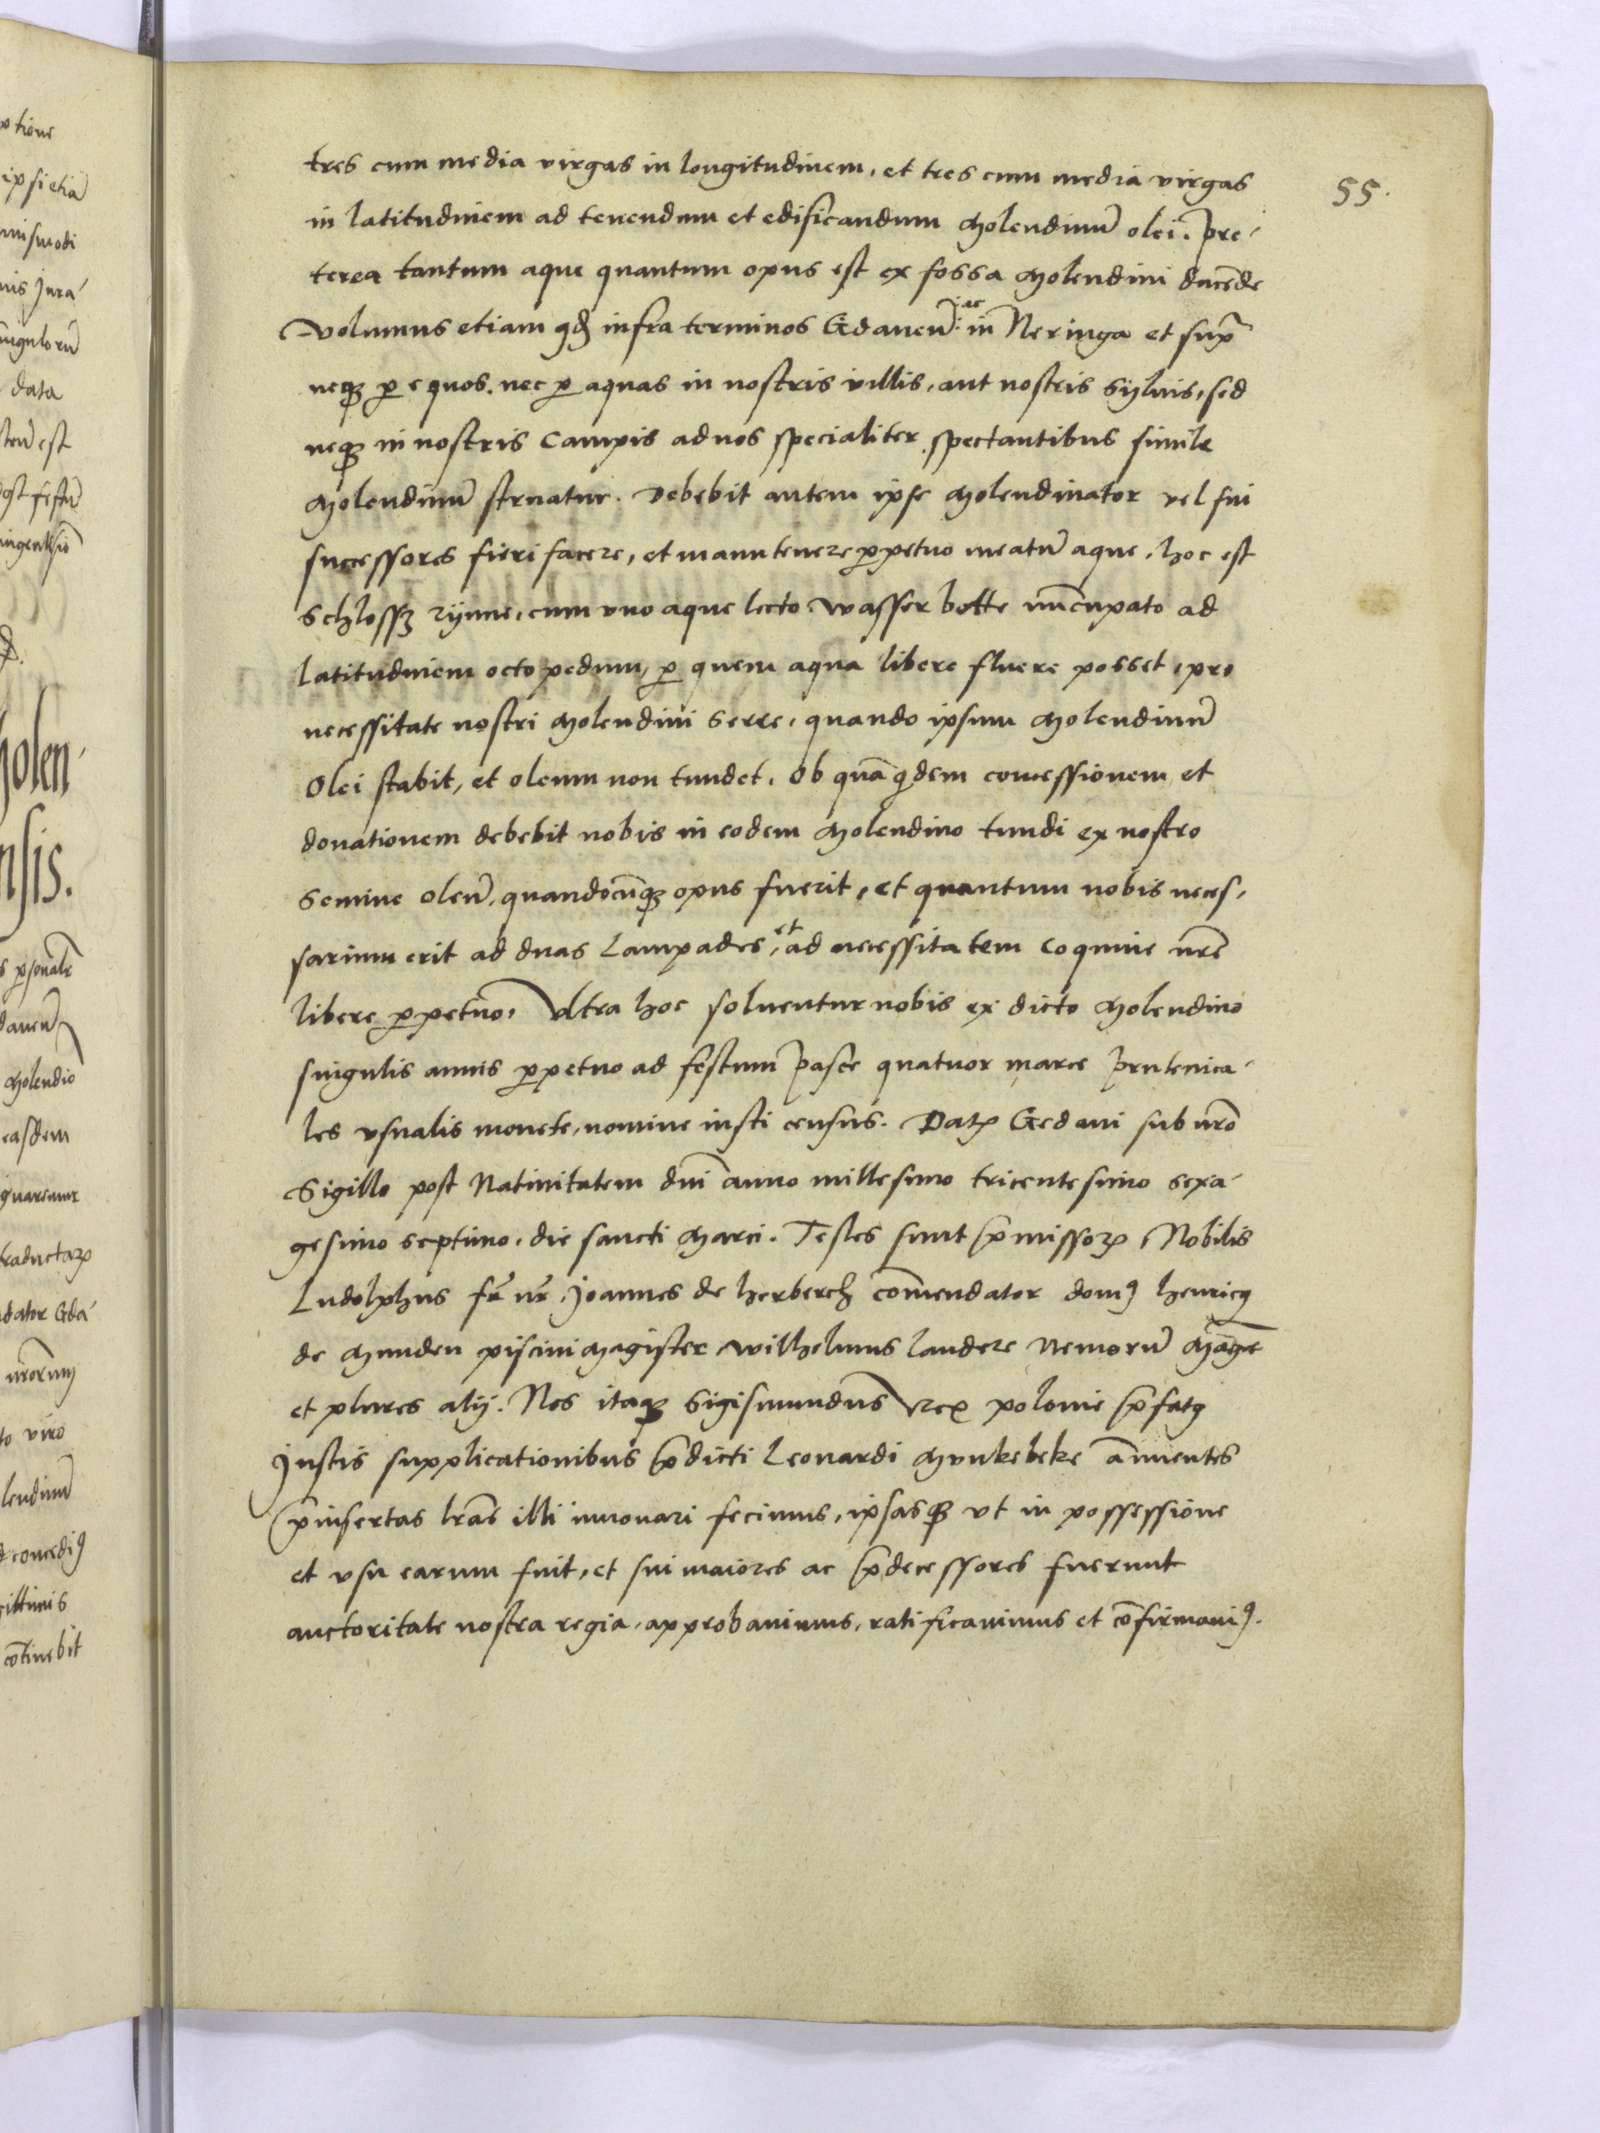 55.
tres cum media virgas in longitudinem, et tres cum media virgas
in latitudinem ad tenendum et edificandum Molendinū olei. Pre-
terea tantum aque quantum opus est ex fossa Molendini ducēde
Volumus etiam qd infra terminos Gdaneñ: ac in Neringa et supᵃ
neqꝫ ꝑ equos. nec ꝑ aquas in nostris villis, aut nostris sylvis, sed
neqꝫ in nostris Campis ad nos specialiter spectantibus simile
Molendinū struatur. Debebit autem ipse Molendinator vel sui
successores fieri facere, et manutenere ꝑpetuo meatū aque, hoc est
Schlossz rynne, cum vno aque lecto wasser bette nūcupato ad
latitudinem octo pedum, ꝑ quem aqua libere fluere posset, pro
necessitate nostri Molendini serre, quando ipsum Molendinū
Olei stabit, et oleum non tundet. Ob quā qdem concessionem et
donationem debebit nobis in eodem Molendino tundi ex nostro
semine oleū, quandocūqꝫ opus fuerit, et quantum nobis neces-
sarium erit ad duas Lampades, et ad necessitatem coquine nrē
libere ꝑpetuo, Vltra hoc soluentur nobis ex dicto Molendino
singulis annis ꝑpetuo ad festum Pasce quatuor marce Prutenica-
les vsualis monete, nomine iusti census. Datꝝ Gedani sub nrō
Sigillo post Natiuitatem dni anno millesimo tricentesimo sexa-
gesimo septimo, die sancti Marci. Testes sunt p̄missoꝝ Nobilis
Ludolphus fr̄ nr̄, Joannes de herberch cōmendator domꝰ henricꝰ
de Munden piscini Magister wilhelmus landere Nemorū Magr̄
et plures alij. Nos itaqꝫ Sigismundus Rex polonie p̄fatꝰ
Justis supplicationibus p̄dicti Leonardi Munkebeke ānuentes
p̄insertas lrās illi innouari fecimus, ipsasqꝫ vt in possessione
et vsu earum fuit, et sui maiores ac p̄decessores fuerunt
auctoritate nostra regia, approbauimus, ratificauimus et cōfirmauiꝰ.